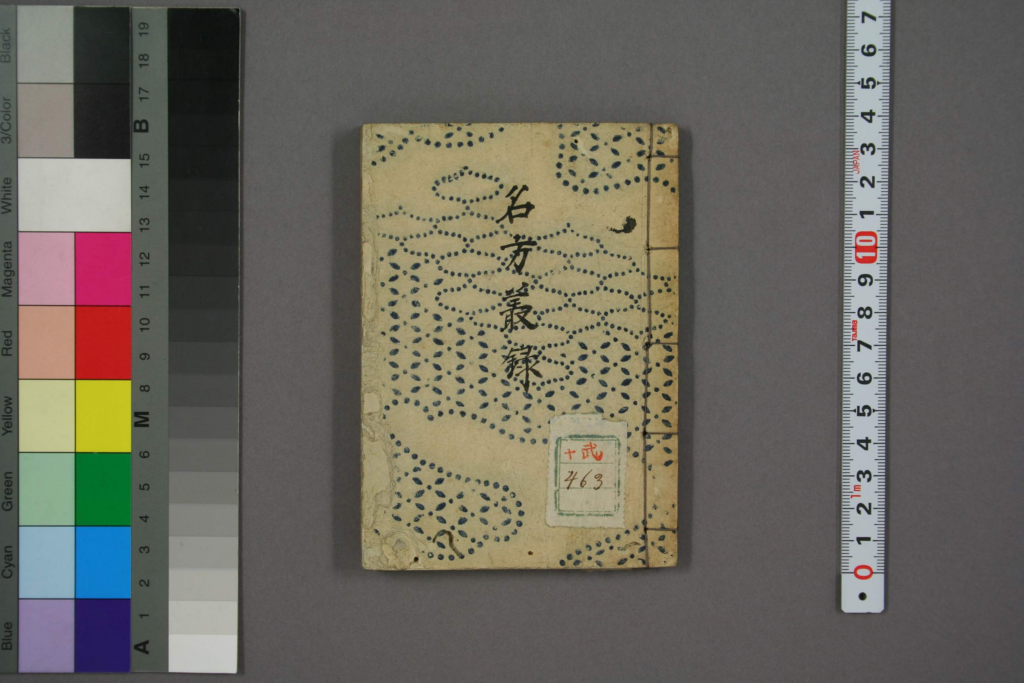 名方叢録
十武
463
Black
3/Color
White
Magenta
Red
Yellow
Green
Cyan
Blue
19
18
17
B
15
14
13
12
11
10
9
8
M
6
5
4
3
2
1
A
7
6
5
4
3
JAPAN
2
1
10
9
8
7
6
5
4
1m
3
2
1
0